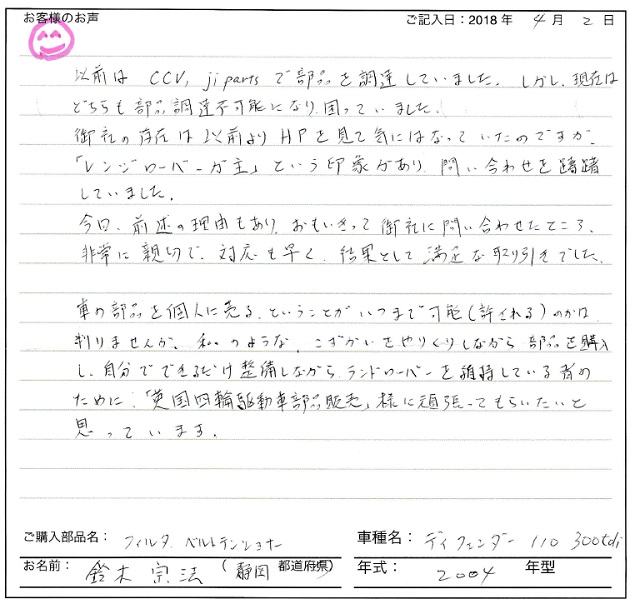 お客様のお声 ご記入日：2018年 4月 2日
以前は CCV, ji parts で部品を調達していました。しかし、現在は
どちらも部品調達不可能になり、困っていました。
御社の存在は以前よりHPを見て気にはなっていたのですが、
「レンジローバーが主」という印象があり、問い合わせを躊躇
していました。
今回、前述の理由もあり、おもいきって御社に問い合わせたところ、
非常に親切で、対応も早く、結果として満足な取り引きでした。
車の部品を個人に売る、ということがいつまで可能(許される)のかは
判りませんが、私のような、こずかいをやりくりしながら部品を購入
し、自分でできるだけ整備しながら、ランドローバーを維持している者の
ために、「英国四輪駆動車部品販売」様に頑張ってもらいたいと
思っています。
ご購入部品名：フィルタ、ベルトテンショナー 車種名：ディフェンダー 110 300tdi
お名前：鈴木 宗法 (静岡 都道府県) 年式：2004 年型